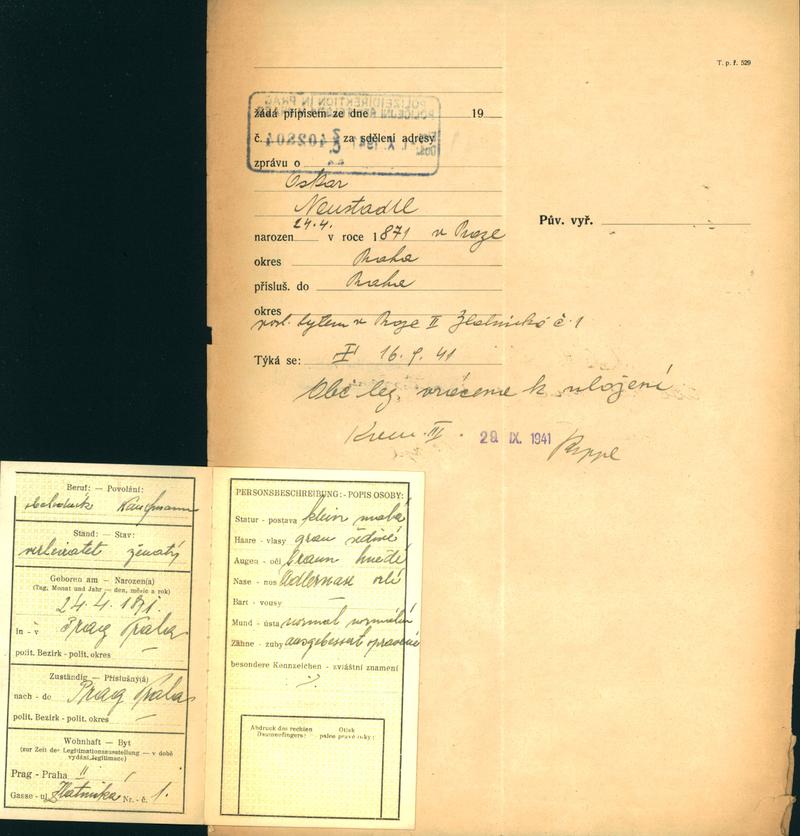 T. p. ř. 529
POLIZEIDIREKTION IN PRAG
žádá přípisem ze dne 19
č. 402804 za sdělení adresy
zprávu o
Oskar
Neustadtl
24.4.
narozen v roce 1871 v Praze
Pův. vyř.
okres Praha
přísluš. do Praha
okres
posl. bytem v Praze II Zlatnická č. 1
Týká se: 16. 9. 41
Obč. leg. vrácena k uložení
29. IX. 1941
Beruf: — Povolání:
obchodník Kaufmann
Stand: — Stav:
verheiratet ženatý
Geboren am — Narozen(a)
(Tag, Monat und Jahr — den, měsíc a rok)
24.4. 1871.
in - v Prag Praha
polit. Bezirk - polit. okres —
Zuständig — Příslušný(á)
nach - do Prag Praha
polit. Bezirk - polit. okres —
Wohnhaft — Byt
(zur Zeit der Legitimationsausstellung — v době
vydání legitimace)
Prag - Praha II
Gasse - ul. Zlatnická Nr. - č. 1.
PERSONSBESCHREIBUNG: - POPIS OSOBY:
Statur - postava klein malá
Haare - vlasy grau šedivé
Augen - oči braun hnědé
Nase - nos Adlernase orlí
Bart - vousy —
Mund - ústa normal normální
Zähne - zuby ausgebessert opravené
besondere Kennzeichen - zvláštní znamení
Abdruck des rechten
Daumenfingers:
Otisk
palce pravé ruky: